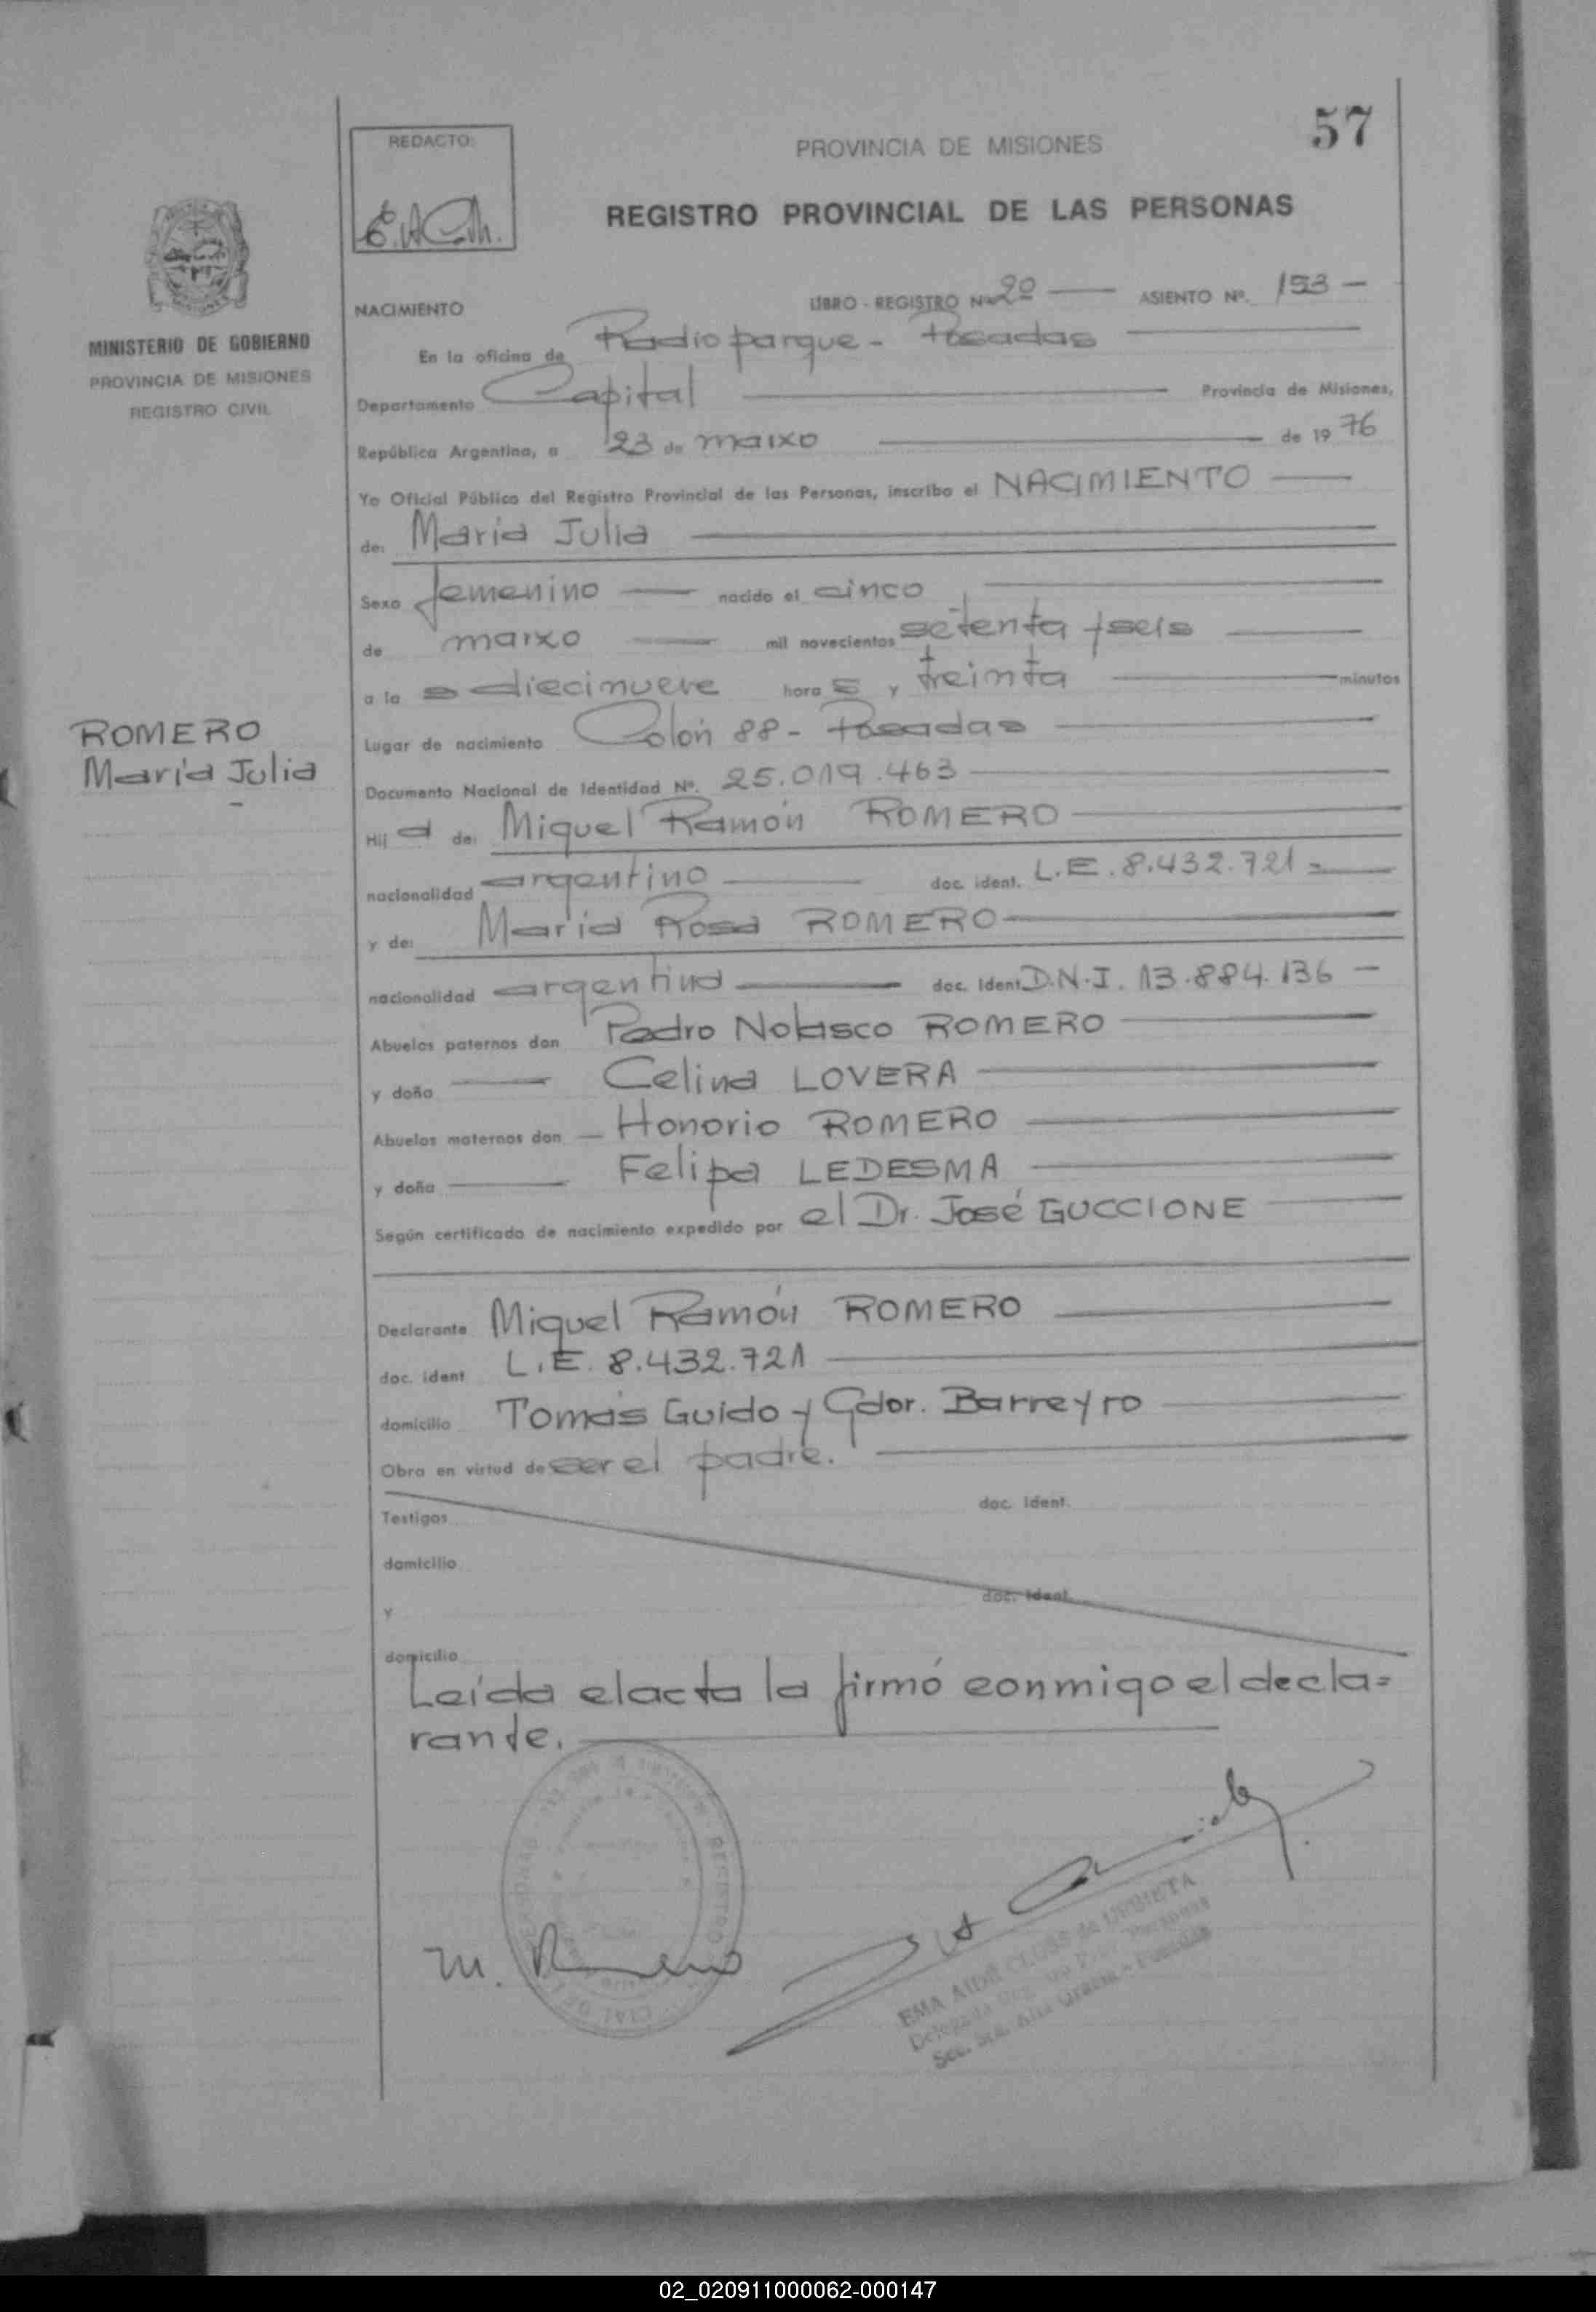 57
REDACTO:
PROVINCIA DE MISIONES
REGISTRO PROVINCIAL DE LAS PERSONAS
MINISTERIO DE GOBIERNO
PROVINCIA DE MISIONES
REGISTRO CIVIL
NACIMIENTO LIBRO - REGISTRO Nº 2º ASIENTO Nº. 153 -
En la oficina de Radioparque - Posadas
Departamento Capital Provincia de Misiones,
República Argentina, a 23 de marzo de 19 76
Yo Oficial Público del Registro Provincial de las Personas, inscribo el NACIMIENTO
de: María Julia
Sexo femenino nacido el cinco
de marzo mil novecientos setenta y seis
a la s diecinueve hora s y treinta minutos
Lugar de nacimiento Colón 88 - Posadas
ROMERO
María Julia
Documento Nacional de Identidad Nº. 25.019.463
Hij a de: Miguel Ramón ROMERO
nacionalidad argentino doc. ident. L.E. 8.432.721 =
y de: María Rosa ROMERO
nacionalidad argentina doc. ident. D.N.I. 13.884.136 -
Abuelos paternos don Pedro Nolasco ROMERO
y doña Celina LOVERA
Abuelos maternos don Honorio ROMERO
y doña Felipa LEDESMA
Según certificado de nacimiento expedido por el Dr. José GUCCIONE
Declarante Miguel Ramón ROMERO
doc. ident L.E. 8.432.721
domicilio Tomás Guido y Gdor. Barreyro
Obra en virtud de ser el padre.
Testigos doc. ident.
domicilio
y doc. ident.
domicilio
Leída el acta la firmó conmigo el decla=
rante.
M. Romero
EMA AIDE CLOSS de URBIETA
02_020911000062-000147